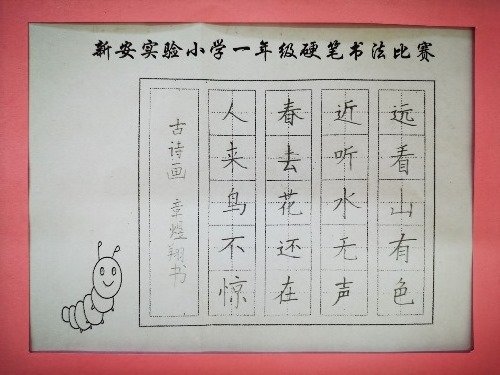 新安实验小学一年级硬笔书法比赛
远看山有色
近听水无声
春去花还在
人来鸟不惊
古诗画 章煜翔书